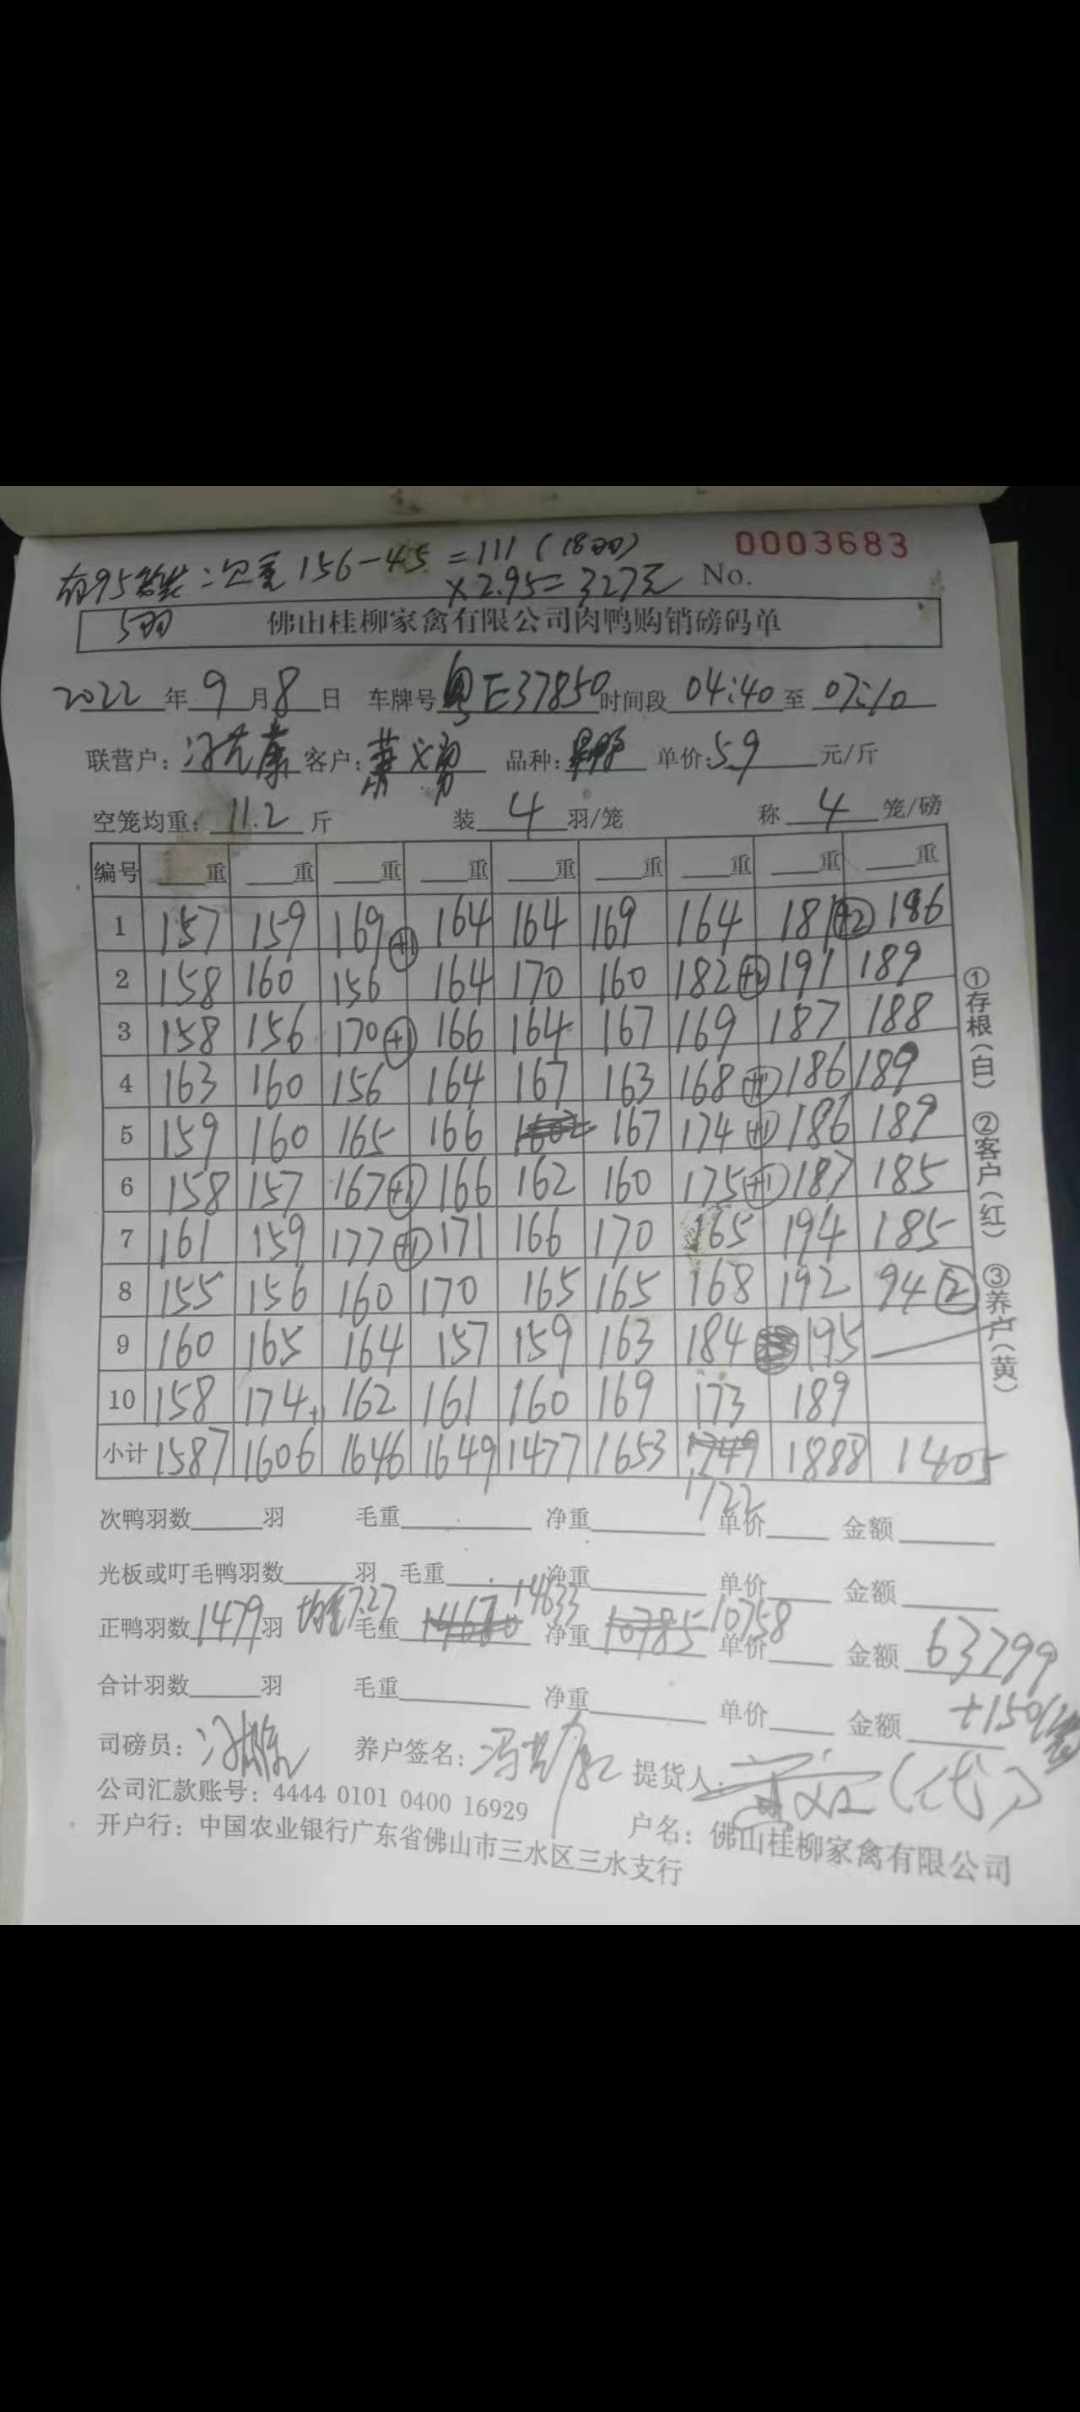 次重156-45=111(18羽)
×2.95=327元 No. 0003683
5羽 佛山桂柳家禽有限公司肉鸭购销磅码单
2022年9月8日 车牌号粤E37850时间段04:40至07:10
联营户: 客户: 品种: 单价:5.9元/斤
空笼均重:11.2斤 装4羽/笼 称4笼/磅
编号 重 重 重 重 重 重 重 重 重
1 157 159 169(+1) 164 164 169 164 181(+2) 186
2 158 160 156 164 170 160 182 191 189
3 158 156 170(+1) 166 164 167 169 187 188
4 163 160 156 164 167 163 168 186 189
5 159 160 165 166 167 174(+1) 186 189
6 158 157 167(+1) 166 162 160 175(+1) 187 185
7 161 159 177(+1) 171 166 170 165 194 185
8 155 156 160 170 165 165 168 192 94(2)
9 160 165 164 157 159 163 184 195
10 158 174+1 162 161 160 169 173 189
小计 1587 1606 1646 1649 1477 1653 1749 1888 1405
1722
①存根(白) ②客户(红) ③养户(黄)
次鸭羽数 羽 毛重 净重 单价 金额
光板或叮毛鸭羽数 羽 毛重 净重 单价 金额
正鸭羽数1479羽 均重7.27 毛重 14633 净重 10785 10758 单价 金额 63299
合计羽数 羽 毛重 净重 单价 金额 +150
司磅员: 养户签名: 提货人: (代)
公司汇款账号:4444 0101 0400 16929
开户行:中国农业银行广东省佛山市三水区三水支行 户名:佛山桂柳家禽有限公司